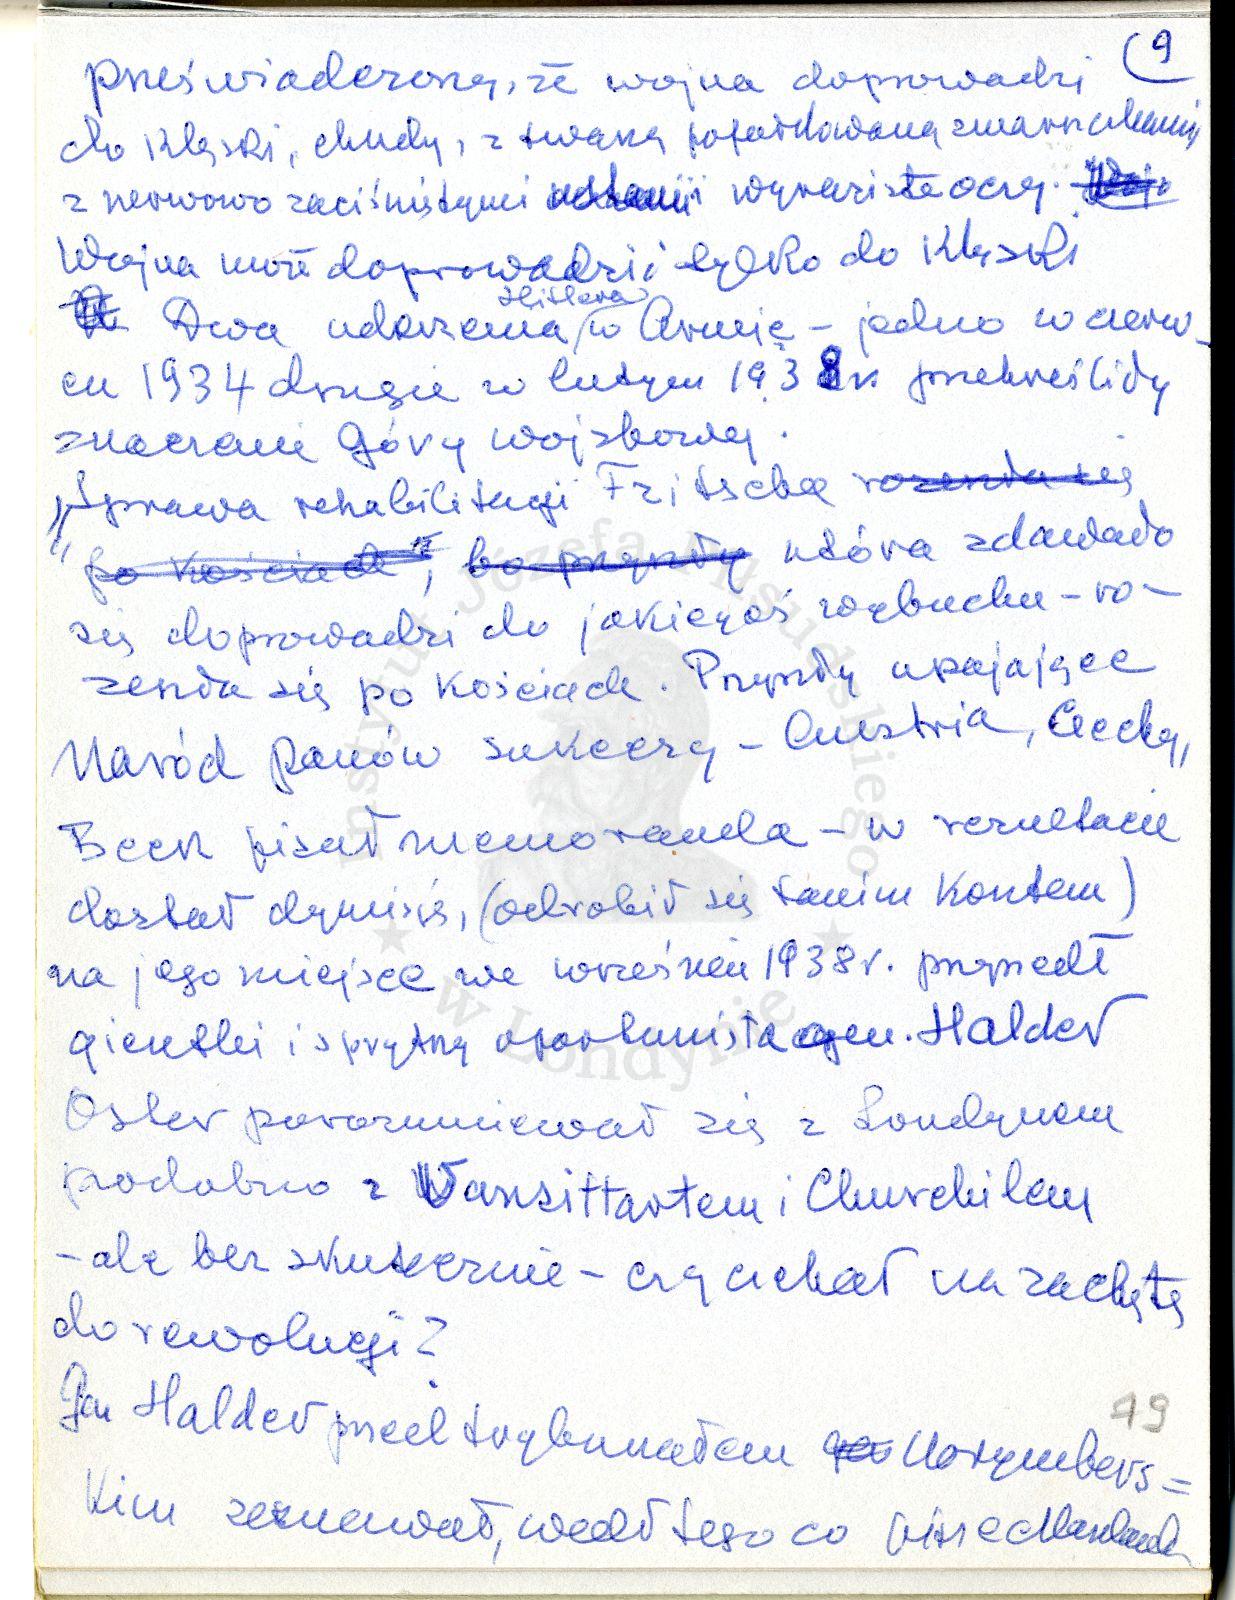 9
przeświadczony, że wojna doprowadzi
do klęski, chudy, z twarzą pofałdowaną zmarszczkami,
z nerwowo zaciśniętymi ustami wyraziste oczy.
Wojna może doprowadzić tylko do klęski
Hitlera
Dwa uderzenia w Armię – jedno w czerw-
cu 1934 drugie w lutym 1938 r przekreśliły
znaczenie Góry wojskowej.
„Sprawa rehabilitacji Fritscha rozeszła się
po kościach", bo przyszły która zdawało
się doprowadzi do jakiegoś wybuchu – ro-
zeszła się po kościach. Przyszły upajające
Naród panów sukcesy – Austria, Czechy,
Beck pisał memoranda – w rezultacie
dostał dymisję, (odrobił się tanim kosztem)
na jego miejsce we wrześniu 1938 r. przyszedł
giętki i sprytny oportunista gen. Halder
Oster porozumiewał się z Londynem
podobno z Vansittartem i Churchilem
– ale bez skutecznie – czy czekał na zachętę
do rewolucji?
Gen Halder przed trybunałem Norymbers=
kim zeznawał, wedł tego co pisze
19
Instytut Józefa Piłsudskiego
w Londynie